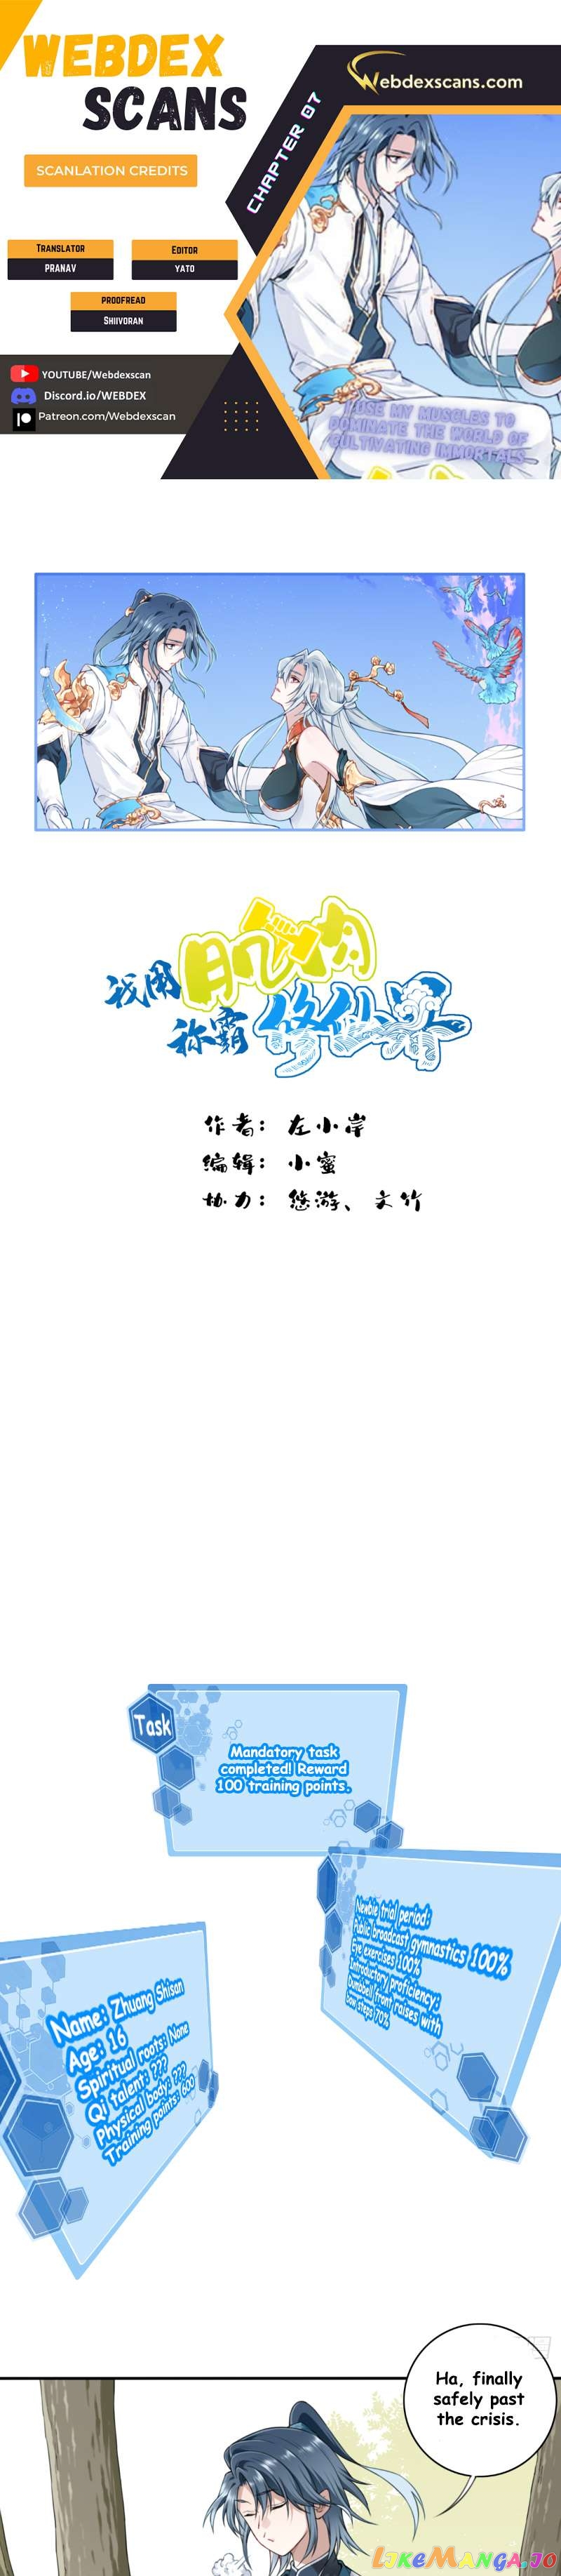 WEBDEX
SCANS
Webdexscans.com
CHAPTER 07
SCANLATION CREDITS
TRANSLATOR
PRANAV
EDITOR
YATO
PROOFREAD
SHIIVORAN
YOUTUBE/Webdexscan
Discord.io/WEBDEX
Patreon.com/Webdexscan
I USE MY MUSCLES TO
DOMINATE THE WORLD OF
CULTIVATING IMMORTALS
我用肌肉
称霸修仙界
作者：左小岸
编辑：小蜜
协力：悠游、文竹
Task
Mandatory task
completed! Reward
100 training points.
Newbie trial period:
Public broadcast gymnastics 100%
Eye exercises 100%
Introductory proficiency:
Dumbbell front raises with
bow steps 70%
Name: Zhuang Shisan
Age: 16
Spiritual roots: None
Qi talent: ???
Physical body: ???
Training points: 600
Ha, finally
safely past
the crisis.
LIKEMANGA.IO